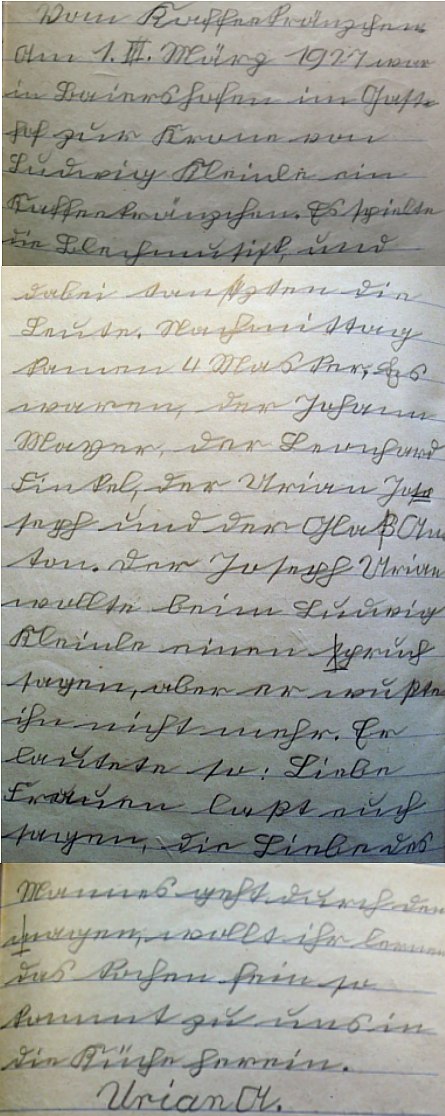 Vom Kaffeekränzchen
Am 1. III. März 1927 war
in Baiershofen im Gast-
hof zur Krone von
Ludwig Kleinle ein
Kaffeekränzchen. Es spielte
die Blechmusik, und
dabei tanzten die
Leute. Nachmittag
kamen 4 Masker, Es
waren, der Johann
Mayer, der Leonhard
Finkel, der Urian Jo
seph und der Glaß An
ton. Der Joseph Urian
wollte beim Ludwig
Kleinle einen spruch
sagen, aber er wußte
ihn nicht mehr. Er
lautete so: Liebe
Frauen laßt euch
sagen, die Liebe des
Mannes geht durch den
magen, wollt ihr lernen
das Kochen fein so
kommt zu uns in
die Küche herein.
Urian A.